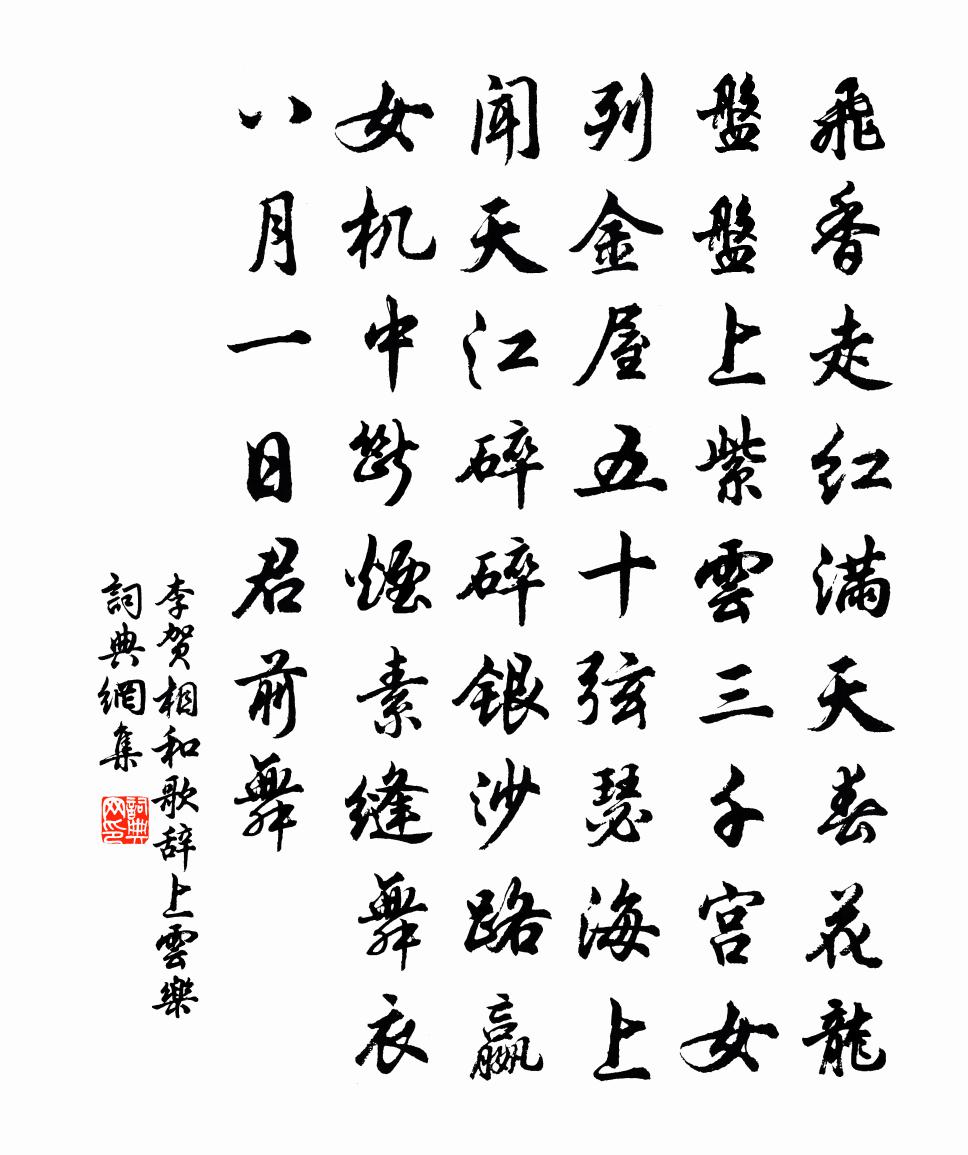 飛香走红满天春花龍
盤盤上紫雲三千宫女
列金屋五十弦瑟海上
闻天江碎碎銀沙路嬴
女机中斷煙素縫舞衣
八月一日君前舞
李贺相和歌辞上雲樂
詞典網集
詞典
网印